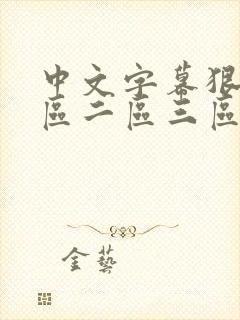 中文字幕狠
區二區三區
金藝